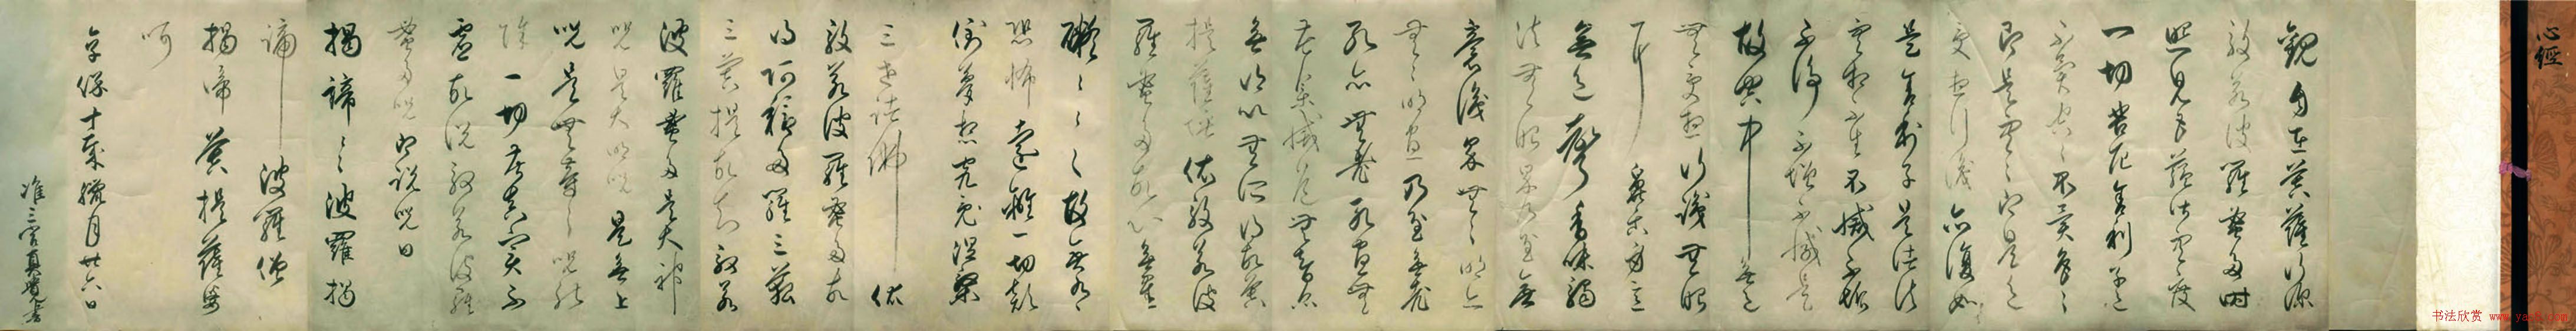 心經
觀自在菩薩行深
般若波羅蜜多時
照見五蘊皆空度
一切苦厄舍利子色
不異空〻不異色〻
即是空〻即是色
受想行識亦復如
是舍利子是諸法
空相不生不滅不垢
不淨不增不減是
故空中無色
無受想行識無眼
耳鼻舌身意
無色聲香味觸
法無眼界乃至無
意識界無〻明亦
無〻明盡乃至無老
死亦無老死盡無
苦集滅道無智亦
無得以無所得故菩
提薩埵依般若波
羅蜜多故心無罣
礙〻〻〻故無有
恐怖遠離一切顛
倒夢想究竟涅槃
三世諸佛依
般若波羅蜜多故
得阿耨多羅三藐
三菩提故知般若
波羅蜜多是大神
咒是大明咒是無上
咒是無等〻咒能
除一切苦真實不
虛故說般若波羅
蜜多咒即說咒曰
揭諦〻〻波羅揭
諦波羅僧
揭帝菩提薩婆
呵
享保十歲臘月廿六日
准三宮真覺書
书法欣赏 www.yac8.com